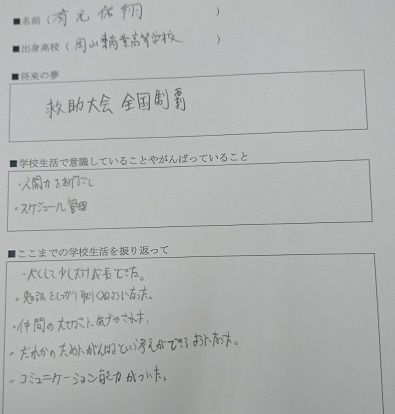 ■名前（有元佑翔）
■出身高校（岡山東商業高等学校）
■将来の夢
救助大会 全国制覇
■学校生活で意識していることやがんばっていること
・人間力をみがくこと
・スケジュール管理
■ここまでの学校生活を振り返って
・人として少しだけ成長できた。
・勉強をしっかり取りくむようになった。
・仲間の大切さに気づかされた。
・だれかのためにがんばるという考えができるようになった。
・コミュニケーション能力がついた。